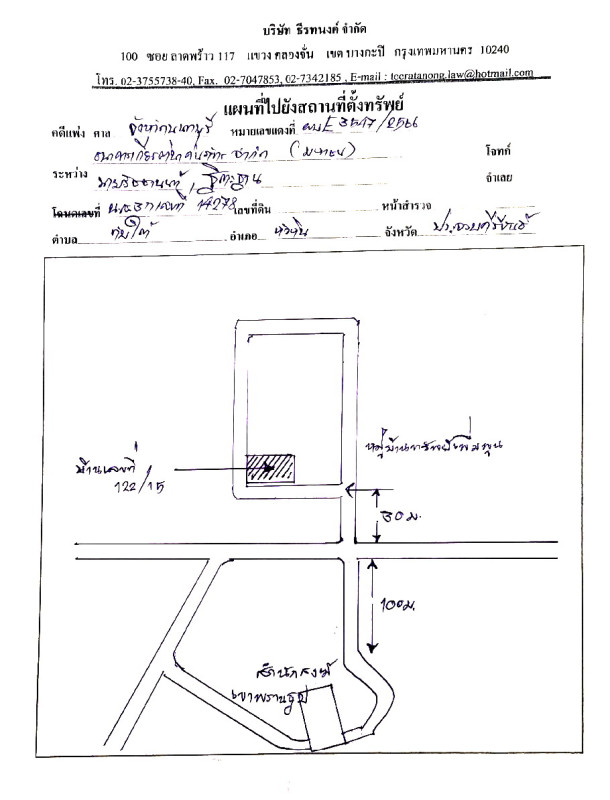 บริษัท ธีรทนงค์ จำกัด
100 ซอย ลาดพร้าว 117 แขวง คลองจั่น เขต บางกะปิ กรุงเทพมหานคร 10240
โทร. 02-3755738-40, Fax. 02-7047853, 02-7342185 , E-mail : tccratanong.law@hotmail.com
แผนที่ไปยังสถานที่ตั้งทรัพย์
คดีแพ่ง ศาล จังหวัดนนทบุรี หมายเลขแดงที่ ผบE 3517/2566
ธนาคารเกียรตินาคินภัทร จำกัด (มหาชน) โจทก์
ระหว่าง จำเลย
โฉนดเลขที่ 14278 เลขที่ดิน หน้าสำรวจ
ตำบล ทับใต้ อำเภอ หัวหิน จังหวัด ประจวบคีรีขันธ์
บ้านเลขที่
122/15
50 ม.
100 ม.
สำนักสงฆ์
เขาพรานธูป